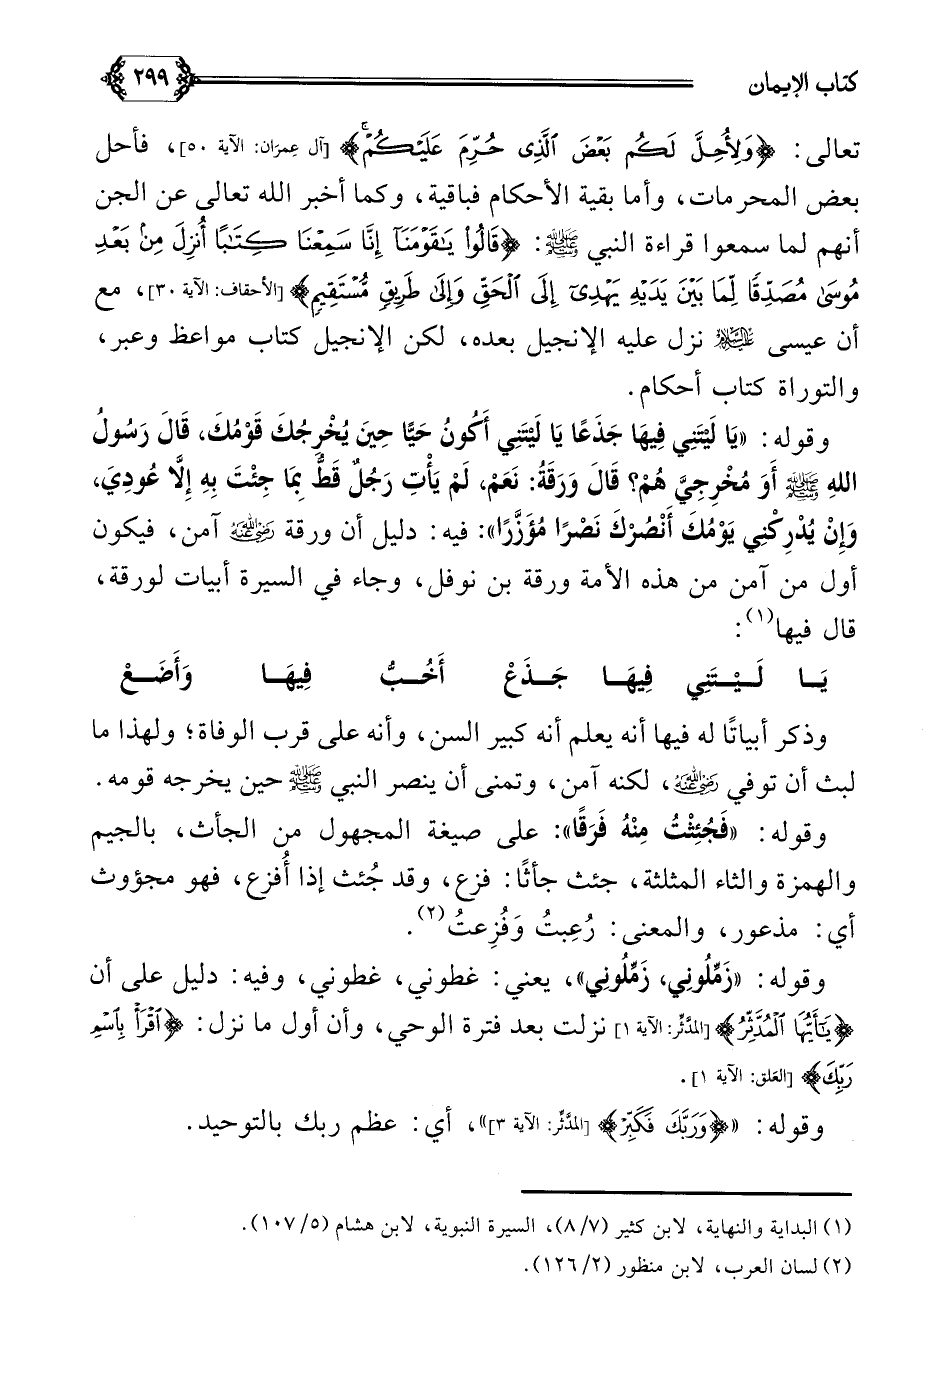 كتاب الإيمان
٢٩٩
تعالى: ﴿وَلِأُحِلَّ لَكُم بَعْضَ ٱلَّذِى حُرِّمَ عَلَيْكُمْ﴾ [آل عِمرَان: الآية ٥٠]، فأحل
بعض المحرمات، وأما بقية الأحكام فباقية، وكما أخبر الله تعالى عن الجن
أنهم لما سمعوا قراءة النبي ﷺ: ﴿قَالُوا۟ يَٰقَوْمَنَآ إِنَّا سَمِعْنَا كِتَٰبًا أُنزِلَ مِنۢ بَعْدِ
مُوسَىٰ مُصَدِّقًا لِّمَا بَيْنَ يَدَيْهِ يَهْدِىٓ إِلَى ٱلْحَقِّ وَإِلَىٰ طَرِيقٍ مُّسْتَقِيمٍ﴾ [الأحقاف: الآية ٣٠]، مع
أن عيسى عليه السلام نزل عليه الإنجيل بعده، لكن الإنجيل كتاب مواعظ وعبر،
والتوراة كتاب أحكام.
وقوله: «يَا لَيْتَنِي فِيهَا جَذَعًا يَا لَيْتَنِي أَكُونُ حَيًّا حِينَ يُخْرِجُكَ قَوْمُكَ، قَالَ رَسُولُ
اللهِ ﷺ أَوَ مُخْرِجِيَّ هُمْ؟ قَالَ وَرَقَةُ: نَعَمْ، لَمْ يَأْتِ رَجُلٌ قَطُّ بِمَا جِئْتَ بِهِ إِلَّا عُودِيَ،
وَإِنْ يُدْرِكْنِي يَوْمُكَ أَنْصُرْكَ نَصْرًا مُؤَزَّرًا»: فيه: دليل أن ورقة رضي الله عنه آمن، فيكون
أول من آمن من هذه الأمة ورقة بن نوفل، وجاء في السيرة أبيات لورقة،
قال فيها(١):
يَا لَيْتَنِي فِيهَا جَذَعْ أَخُبُّ فِيهَا وَأَضَعْ
وذكر أبياتًا له فيها أنه يعلم أنه كبير السن، وأنه على قرب الوفاة؛ ولهذا ما
لبث أن توفي رضي الله عنه، لكنه آمن، وتمنى أن ينصر النبي ﷺ حين يخرجه قومه.
وقوله: «فَجُئِثْتُ مِنْهُ فَرَقًا»: على صيغة المجهول من الجأث، بالجيم
والهمزة والثاء المثلثة، جئث جأثًا: فزع، وقد جُئث إذا أُفزع، فهو مجؤوث
أي: مذعور، والمعنى: رُعِبتُ وَفُزِعتُ(٢).
وقوله: «زَمِّلُونِي، زَمِّلُونِي»، يعني: غطوني، غطوني، وفيه: دليل على أن
﴿يَٰٓأَيُّهَا ٱلْمُدَّثِّرُ﴾ [المدَّثِّر: الآية ١] نزلت بعد فترة الوحي، وأن أول ما نزل: ﴿ٱقْرَأْ بِٱسْمِ
رَبِّكَ﴾ [العَلق: الآية ١].
وقوله: «﴿وَرَبَّكَ فَكَبِّرْ﴾ [المدَّثِّر: الآية ٣]»، أي: عظم ربك بالتوحيد.
(١) البداية والنهاية، لابن كثير (٨/٧)، السيرة النبوية، لابن هشام (١٠٧/٥).
(٢) لسان العرب، لابن منظور (١٢٦/٢).